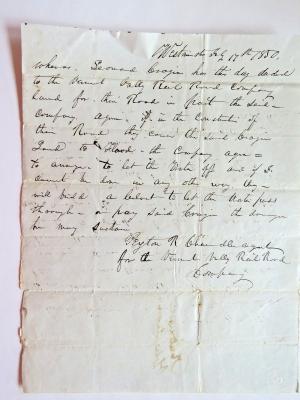 Westminster July 17th 1850,
Whereas Leonard Cragin has this day deeded
to the Vermt Vally Rail Road Company
Land for their Road in part the said
Company agree if in the Construction of
their Road they cause the said Cragin
Land to Flood - the Company agree
to arrange to let the Water off and if I
cannot be done in any other way they
will build a culvert to let the Water pass
through - or pay said Cragin the damage
he may Sustain
Peyton R Chandler agent
for the Vermont Vally Rail Road
Company